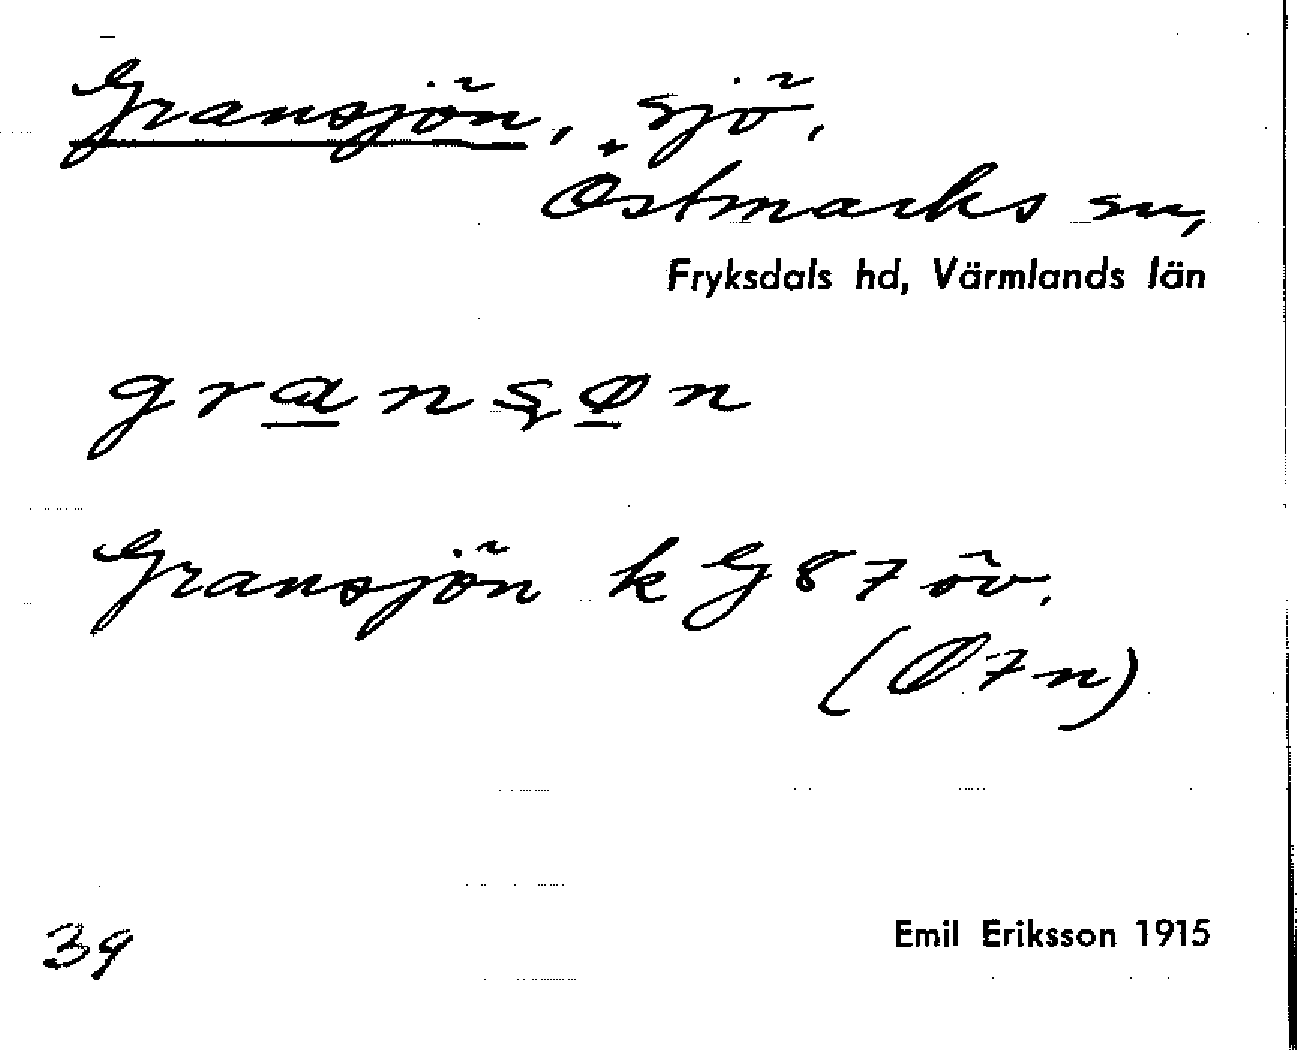 Gransjön, sjö,
Östmarks sn,
Fryksdals hd, Värmlands län
granʂøn
Gransjön k G 87 öv.
(Ø 7 n)
39
Emil Eriksson 1915